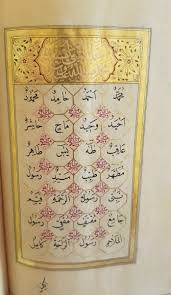 مُحَمَّدٌ أَحْمَدُ حَامِدٌ مَحْمُودٌ
أَحِيدُ وَحِيدٌ مَاحٍ حَاشِرٌ
عَاقِبٌ طٰهٰ يٰسٓ طَاهِرٌ
مُطَهَّرٌ طَيِّبٌ سَيِّدٌ رَسُولٌ
نَبِيٌّ رَسُولُ الرَّحْمَةِ قَيِّمٌ
جَامِعٌ مُقْتَفٍ مُقَفًّى رَسُولُ
الْمَلَاحِمِ رَسُولُ الرَّاحَةِ كَامِلٌ